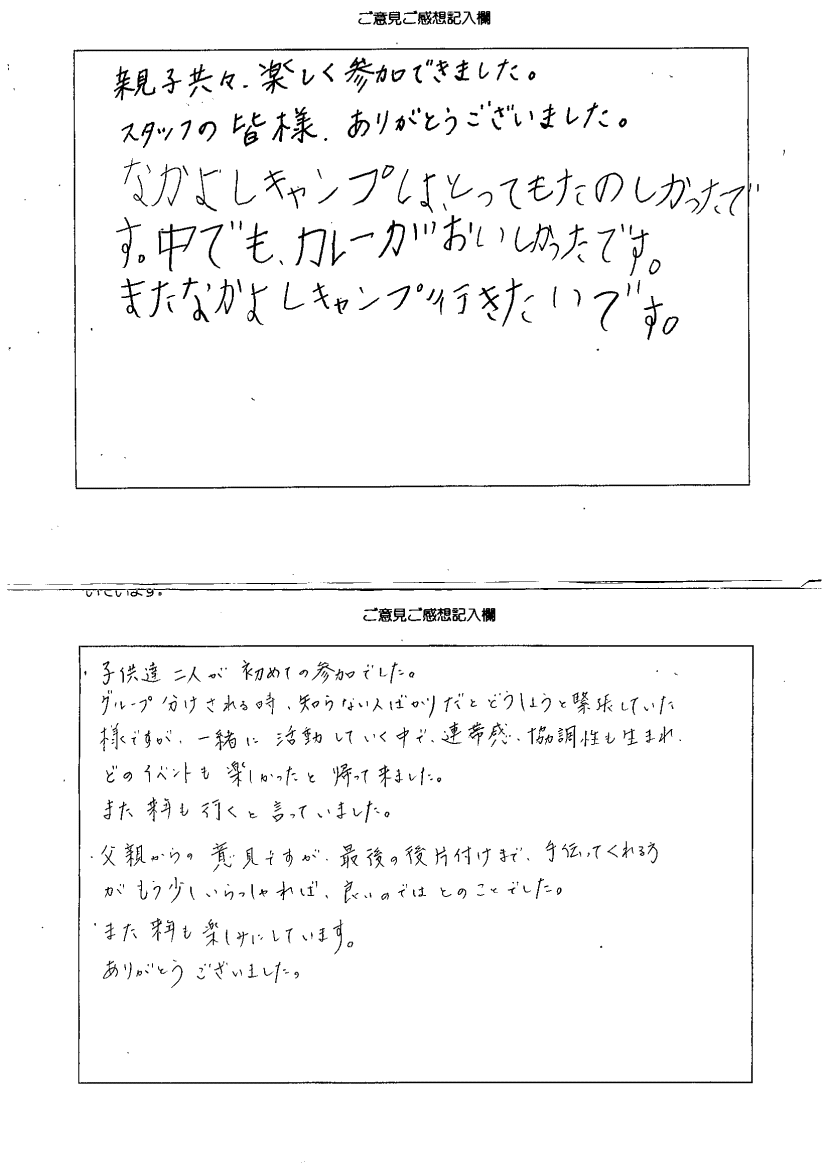 ご意見ご感想記入欄
親子共々、楽しく参加できました。
スタッフの皆様、ありがとうございました。
なかよしキャンプは、とってもたのしかったで
す。中でも、カレーがおいしかったです。
またなかよしキャンプ行きたいです。
ています。
ご意見ご感想記入欄
・子供達二人が初めての参加でした。
グループ分けされる時、知らない人ばかりだとどうしようと緊張していた
様ですが、一緒に活動していく中で、連帯感、協調性も生まれ、
どのイベントも楽しかったと帰って来ました。
また来年も行くと言っていました。
・父親からの意見ですが、最後の後片付けまで、手伝ってくれる方
がもう少しいらっしゃれば、良いのではとのことでした。
・また来年も楽しみにしています。
ありがとうございました。